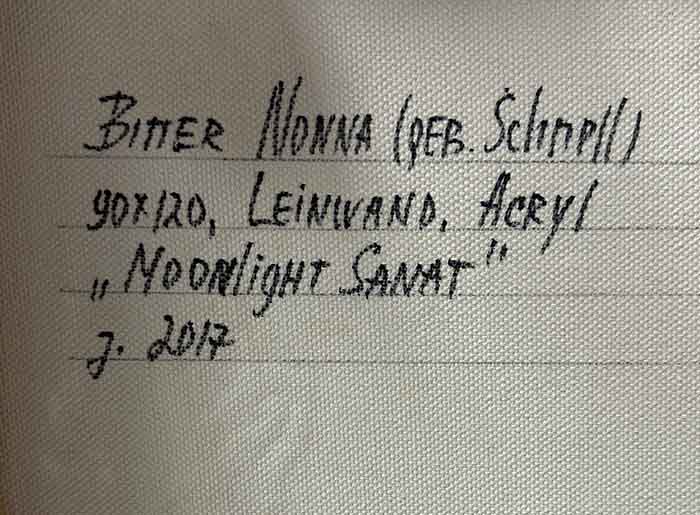 BITTER NONNA (GEB.
90x120, LEINWAND, ACRYL
„MOONlighT SANAT"
J. 2017